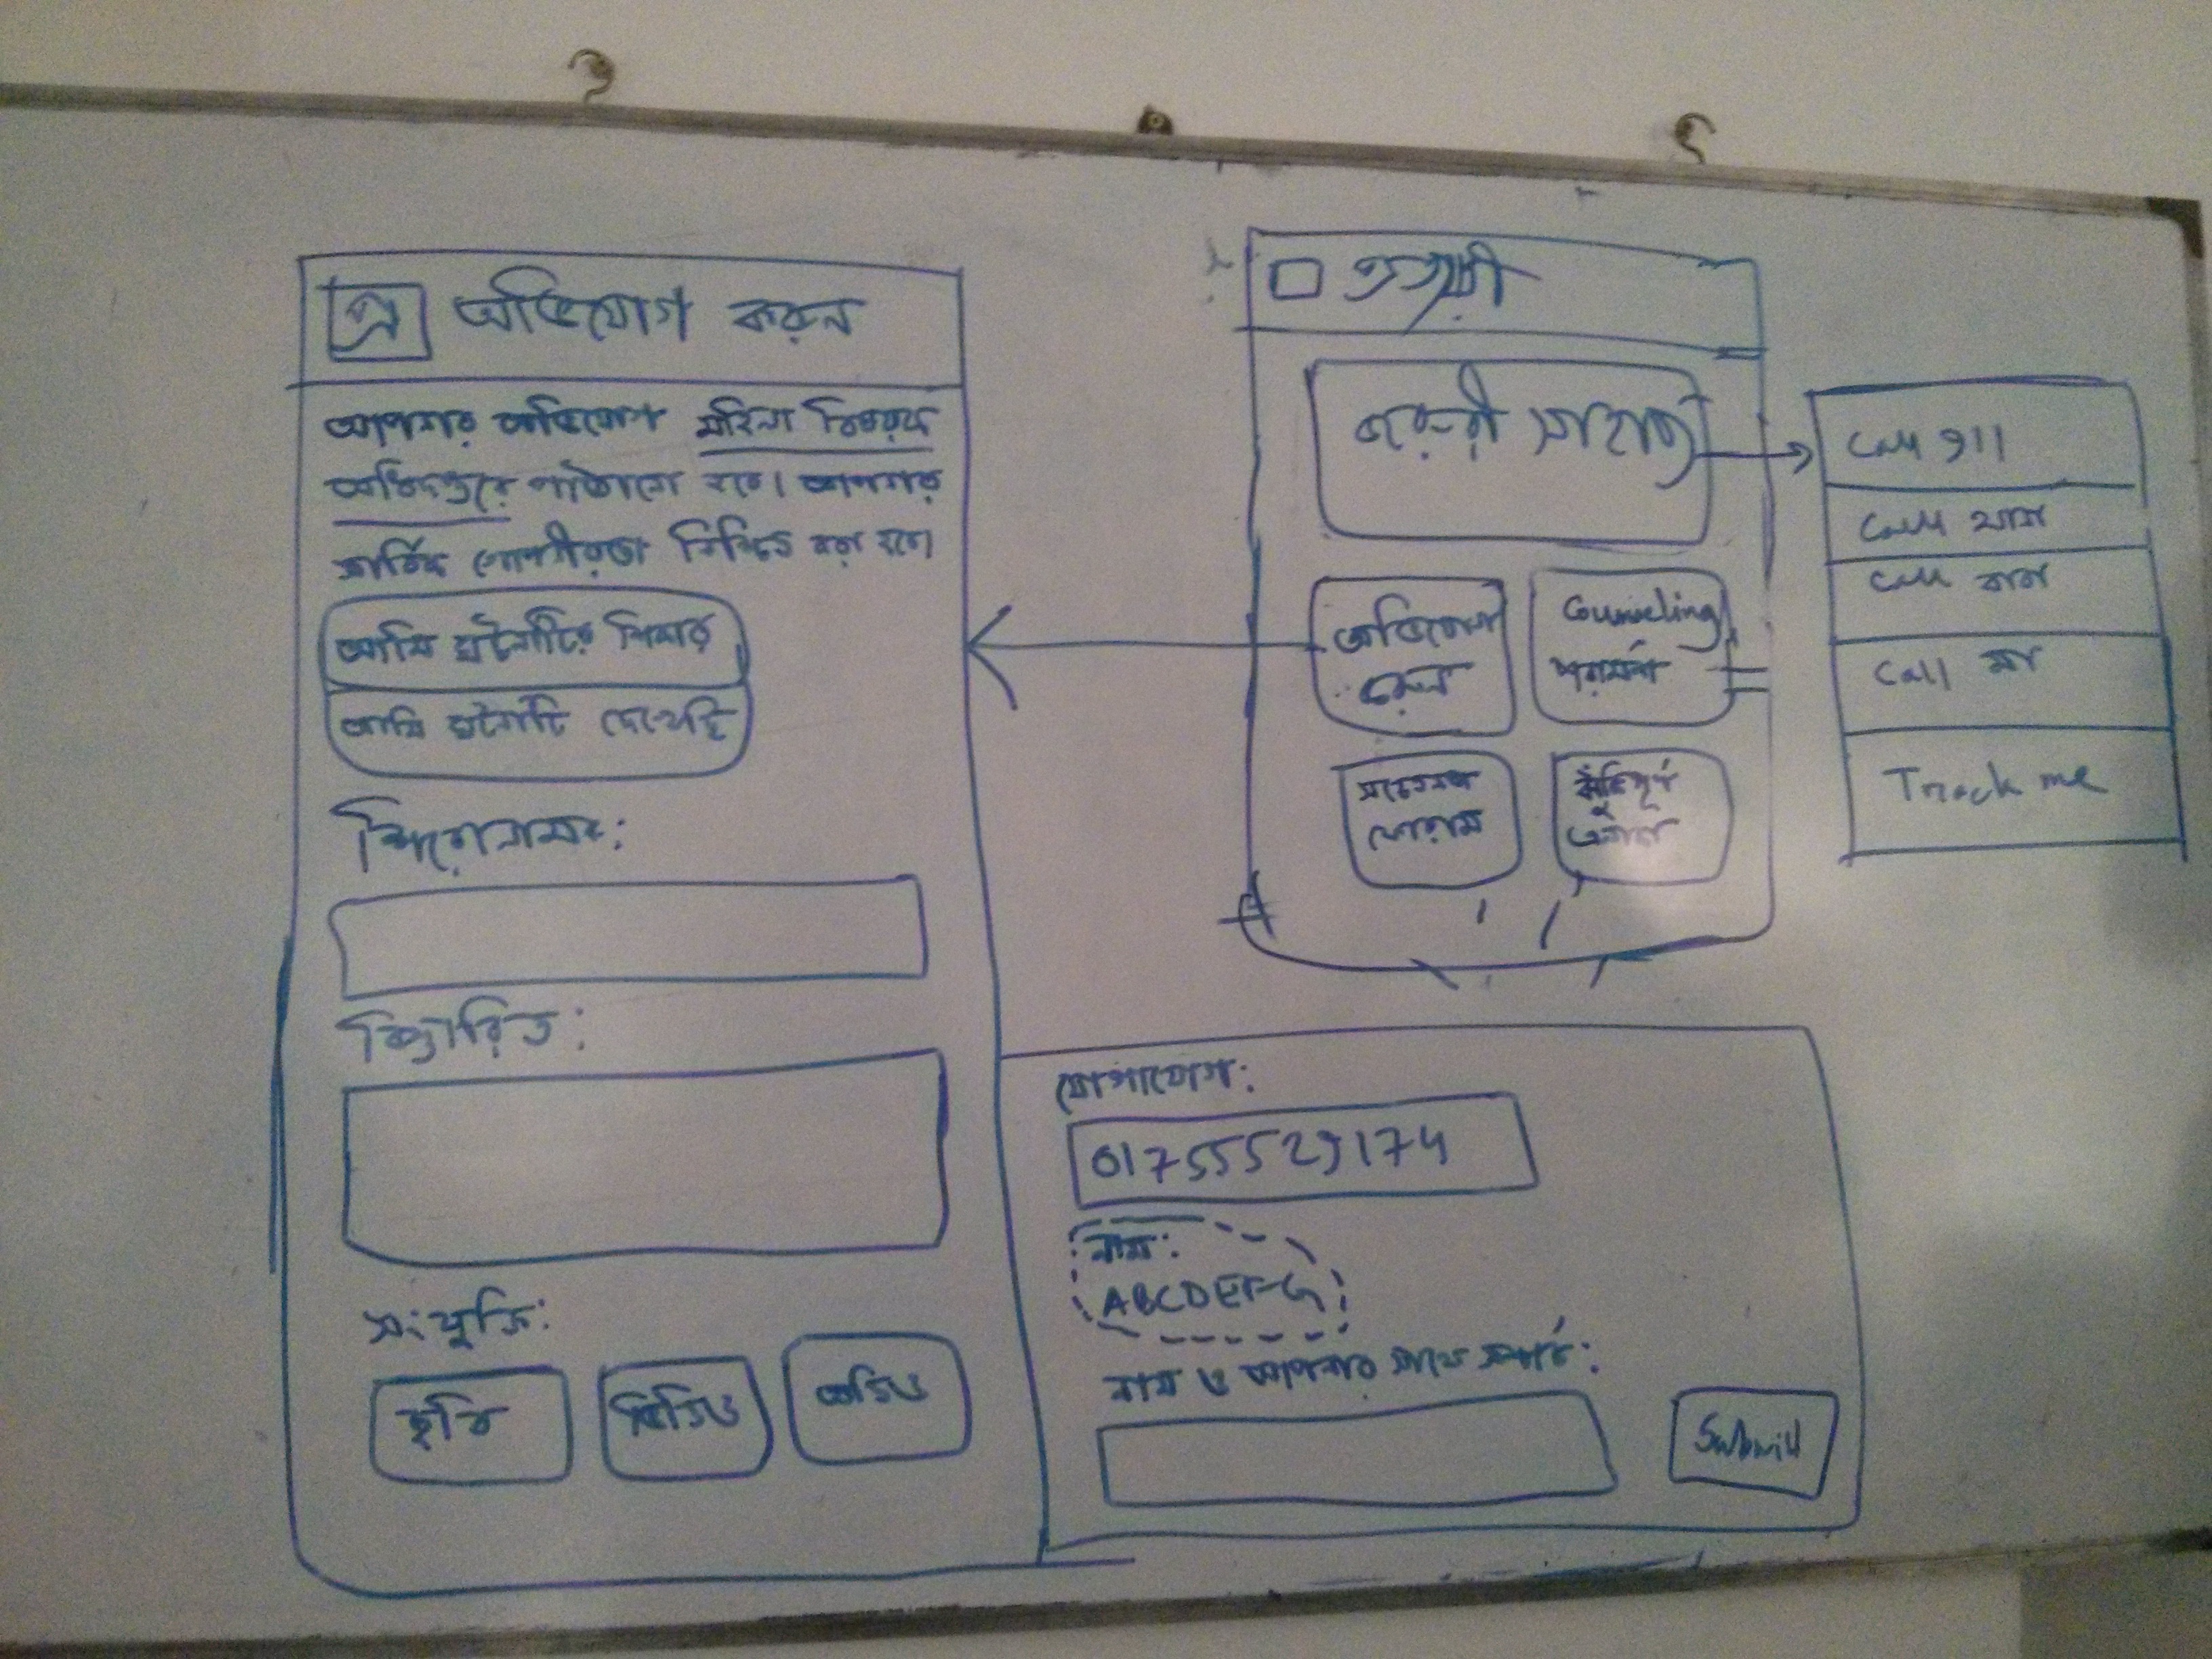 প্র অভিযোগ করুন
আপনার অভিযোগ মহিলা বিষয়ক
অধিদপ্তরে পাঠানো হবে। আপনার
সার্বিক গোপনীয়তা নিশ্চিত করা হবে।
আমি ঘটনাটির শিকার
আমি ঘটনাটি দেখেছি
শিরোনাম:
বিস্তারিত:
সংযুক্তি:
ছবি
ভিডিও
অডিও
জরুরী সাহায্য
অভিযোগ
করুন
Counseling
পরামর্শ
সচেতনতা
ফোরাম
ঝুঁকিপূর্ণ
এলাকা
Call 911
Call থানা
Call বাবা
Call মা
Track me
যোগাযোগ:
01755529174
নাম:
ABCDEFG
নাম ও আপনার সাথে সম্পর্ক:
Submit